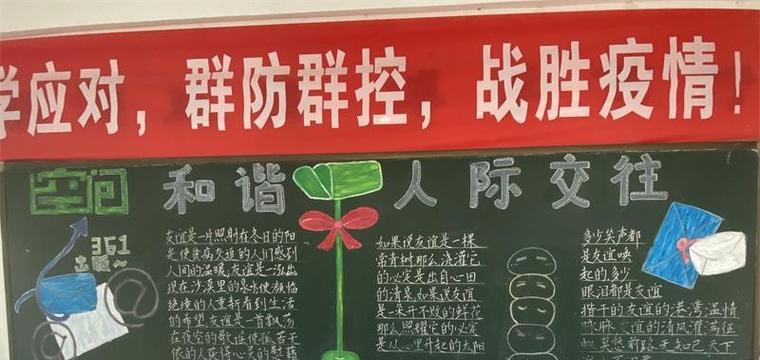 学应对，群防群控，战胜疫情！
空间
和谐 人际交往
351
出版~
友谊是一片照射在冬日的阳
是使贫病交迫的人们感到
人间的温暖，友谊是一汤出
现在沙漠里的泉水使濒临
绝境的人重新看到生活
的希望，友谊是一首飘荡
在夜空的歌谣使孤苦无
依的人获得心灵的慰藉
如果说友谊是一棵
常青树那么浇灌它
的必定是出自心田
的清泉如果说友谊
是一朵开不败的鲜花
那么照耀它的必定
是从心里升起的太阳
多少笑声都
是友谊唤
起的多少
眼泪都是友谊
揩干的友谊的港湾温情
脉脉友谊的清风灌满征